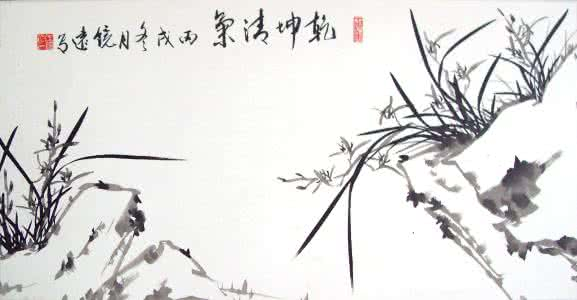 乾坤清氣 丙戌冬月镜遠写